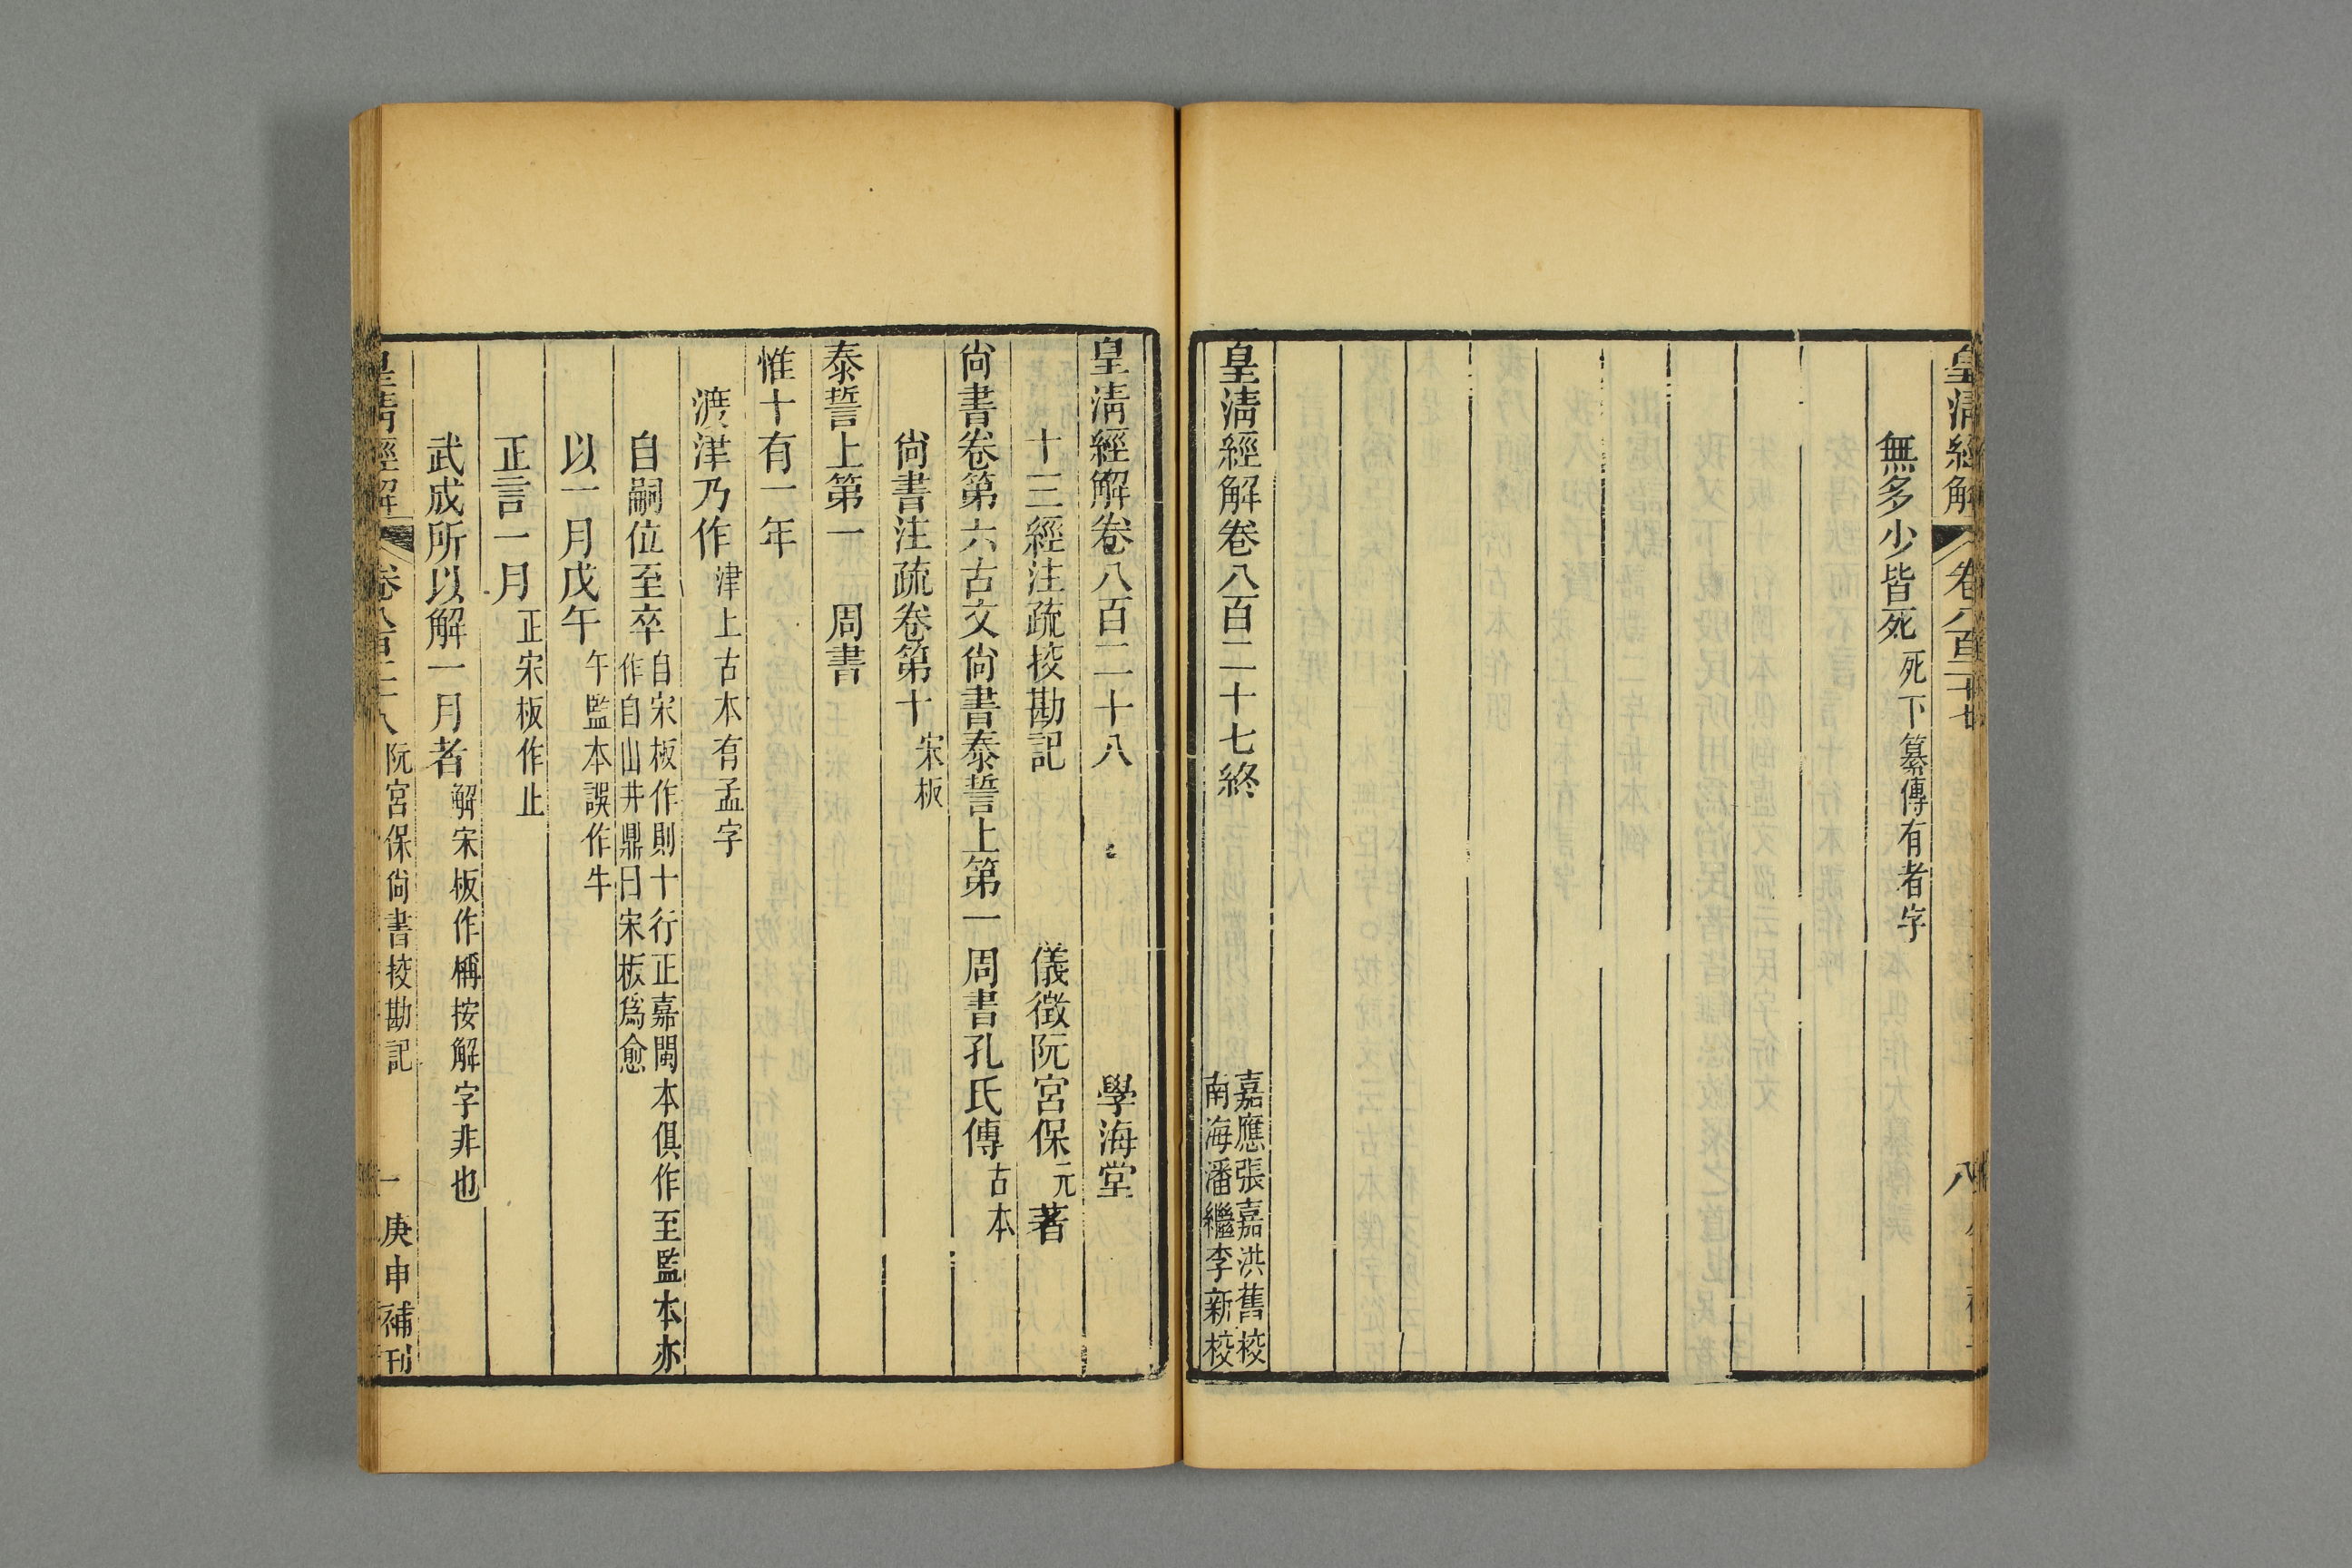 皇清經解 卷八百二十七 八
無多少皆死死下纂傳有者字
皇清經解卷八百二十七終 嘉應張嘉洪舊校
南海潘繼李新校
皇清經解卷八百二十八 學海堂
十三經注疏挍勘記 儀徵阮宮保元著
尙書卷第六古文尙書泰誓上第一周書孔氏傳古本
尙書注疏卷第十宋板
泰誓上第一 周書
惟十有一年
渡津乃作津上古本有孟字
自嗣位至卒自宋板作則十行正嘉閩本俱作至監本亦
作自山井鼎曰宋板爲愈
以一月戊午午監本誤作牛
正言一月正宋板作止
武成所以解一月者解宋板作稱按解字非也
皇清經解 卷八百二十八 阮宮保尙書挍勘記 一 庚申補刊